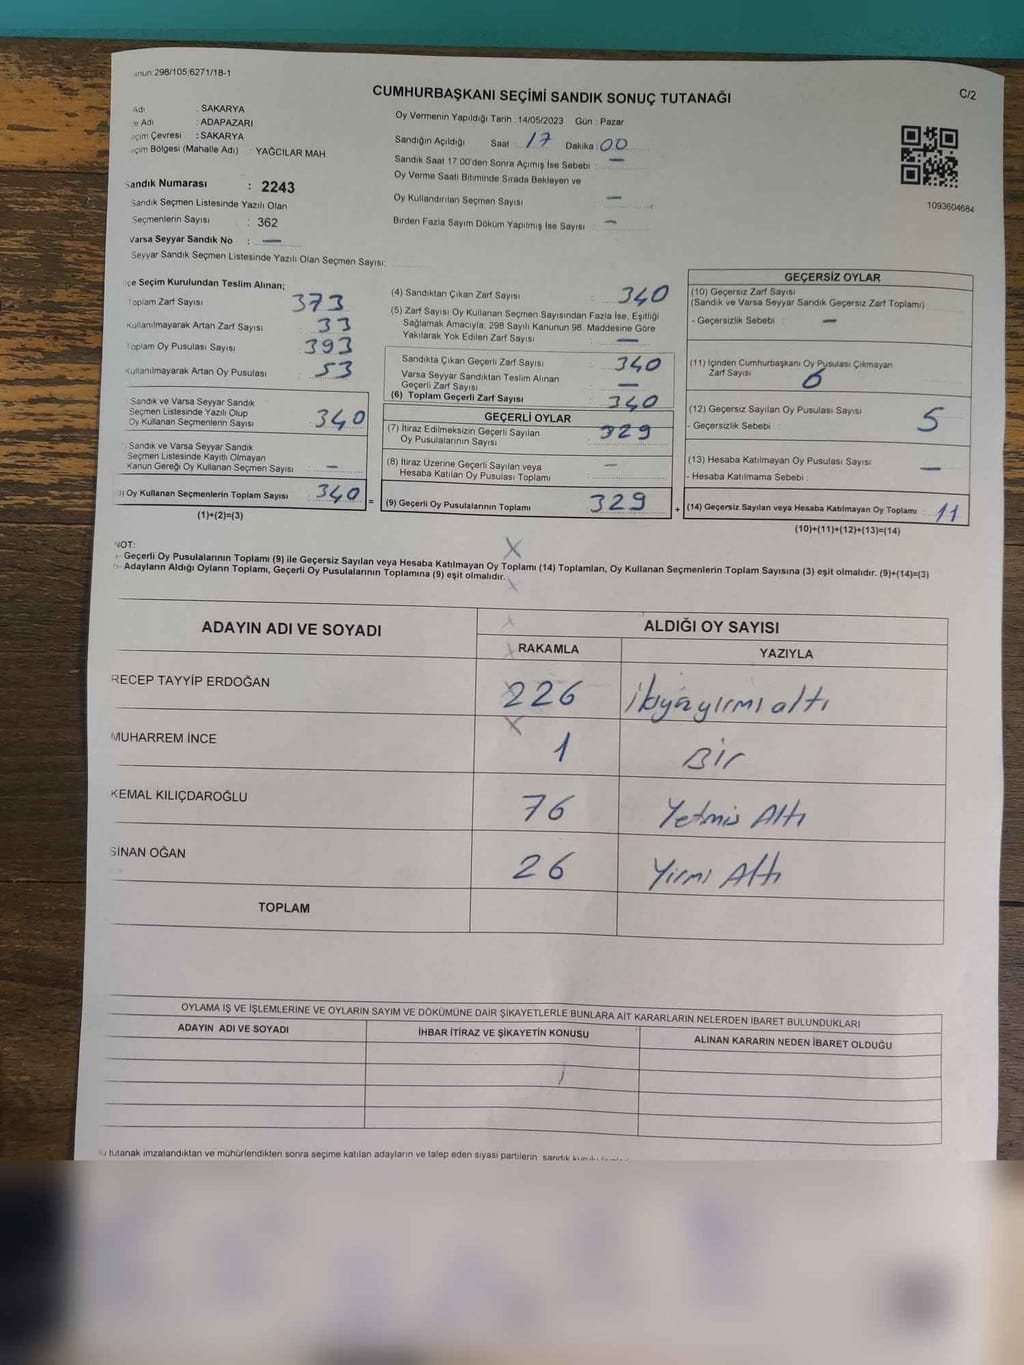 anun:298/105;6271/18-1
CUMHURBAŞKANI SEÇİMİ SANDIK SONUÇ TUTANAĞI
C/2
Adı : SAKARYA
e Adı : ADAPAZARI
eçim Çevresi : SAKARYA
eçim Bölgesi (Mahalle Adı) : YAĞCILAR MAH.
Sandık Numarası : 2243
Sandık Seçmen Listesinde Yazılı Olan
Seçmenlerin Sayısı : 362
Varsa Seyyar Sandık No : —
Seyyar Sandık Seçmen Listesinde Yazılı Olan Seçmen Sayısı:
Oy Vermenin Yapıldığı Tarih : 14/05/2023 Gün : Pazar
Sandığın Açıldığı Saat : 17 Dakika : 00
Sandık Saat 17:00'den Sonra Açımış İse Sebebi : —
Oy Verme Saati Bitiminde Sırada Bekleyen ve
Oy Kullandırılan Seçmen Sayısı : —
Birden Fazla Sayım Döküm Yapılmış İse Sayısı : —
1093604684
çe Seçim Kurulundan Teslim Alınan;
Toplam Zarf Sayısı : 373
Kullanılmayarak Artan Zarf Sayısı : 33
Toplam Oy Pusulası Sayısı : 393
Kullanılmayarak Artan Oy Pusulası : 53
Sandık ve Varsa Seyyar Sandık
Seçmen Listesinde Yazılı Olup
Oy Kullanan Seçmenlerin Sayısı : 340
Sandık ve Varsa Seyyar Sandık
Seçmen Listesinde Kayıtlı Olmayan
Kanun Gereği Oy Kullanan Seçmen Sayısı : —
) Oy Kullanan Seçmenlerin Toplam Sayısı : 340 =
(1)+(2)=(3)
(4) Sandıktan Çıkan Zarf Sayısı : 340
(5) Zarf Sayısı Oy Kullanan Seçmen Sayısından Fazla İse, Eşitliği
Sağlamak Amacıyla; 298 Sayılı Kanunun 98. Maddesine Göre
Yakılarak Yok Edilen Zarf Sayısı : —
Sandıkta Çıkan Geçerli Zarf Sayısı : 340
Varsa Seyyar Sandıktan Teslim Alınan
Geçerli Zarf Sayısı : —
(6) Toplam Geçerli Zarf Sayısı : 340
GEÇERLİ OYLAR
(7) İtiraz Edilmeksizin Geçerli Sayılan
Oy Pusulalarının Sayısı : 329
(8) İtiraz Üzerine Geçerli Sayılan veya
Hesaba Katılan Oy Pusulası Toplamı : —
(9) Geçerli Oy Pusulalarının Toplamı : 329 +
GEÇERSİZ OYLAR
(10) Geçersiz Zarf Sayısı
(Sandık ve Varsa Seyyar Sandık Geçersiz Zarf Toplamı)
- Geçersizlik Sebebi : —
(11) İçinden Cumhurbaşkanı Oy Pusulası Çıkmayan
Zarf Sayısı : 6
(12) Geçersiz Sayılan Oy Pusulası Sayısı : 5
- Geçersizlik Sebebi :
(13) Hesaba Katılmayan Oy Pusulası Sayısı : —
- Hesaba Katılmama Sebebi :
(14) Geçersiz Sayılan veya Hesaba Katılmayan Oy Toplamı : 11
(10)+(11)+(12)+(13)=(14)
NOT:
- Geçerli Oy Pusulalarının Toplamı (9) ile Geçersiz Sayılan veya Hesaba Katılmayan Oy Toplamı (14) Toplamları, Oy Kullanan Seçmenlerin Toplam Sayısına (3) eşit olmalıdır. (9)+(14)=(3)
- Adayların Aldığı Oyların Toplamı, Geçerli Oy Pusulalarının Toplamına (9) eşit olmalıdır.
ADAYIN ADI VE SOYADI ALDIĞI OY SAYISI
RAKAMLA YAZIYLA
RECEP TAYYİP ERDOĞAN 226 ikiyüzyirmi altı
MUHARREM İNCE 1 Bir
KEMAL KILIÇDAROĞLU 76 Yetmiş Altı
SİNAN OĞAN 26 Yirmi Altı
TOPLAM
OYLAMA İŞ VE İŞLEMLERİNE VE OYLARIN SAYIM VE DÖKÜMÜNE DAİR ŞİKAYETLERLE BUNLARA AİT KARARLARIN NELERDEN İBARET BULUNDUKLARI
ADAYIN ADI VE SOYADI İHBAR İTİRAZ VE ŞİKAYETİN KONUSU ALINAN KARARIN NEDEN İBARET OLDUĞU
tutanak imzalandıktan ve mühürlendikten sonra seçime katılan adayların ve talep eden siyasi partilerin sandık kurulu